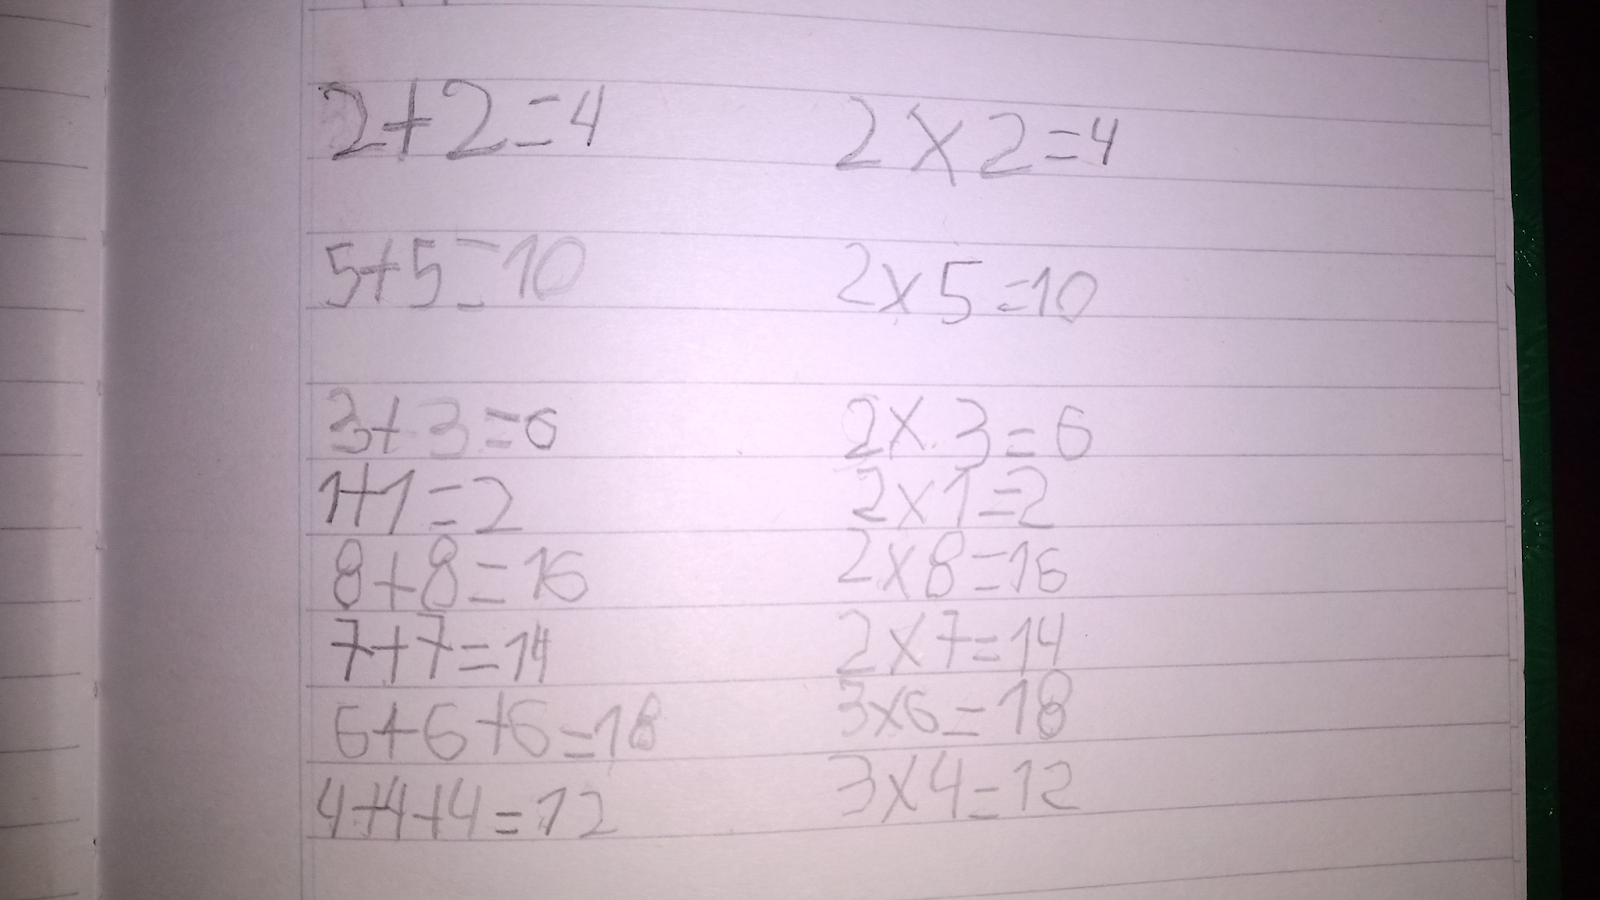 2+2=4 2×2=4
5+5=10 2×5=10
3+3=6 2×3=6
1+1=2 2×1=2
8+8=16 2×8=16
7+7=14 2×7=14
6+6+6=18 3×6=18
4+4+4=12 3×4=12